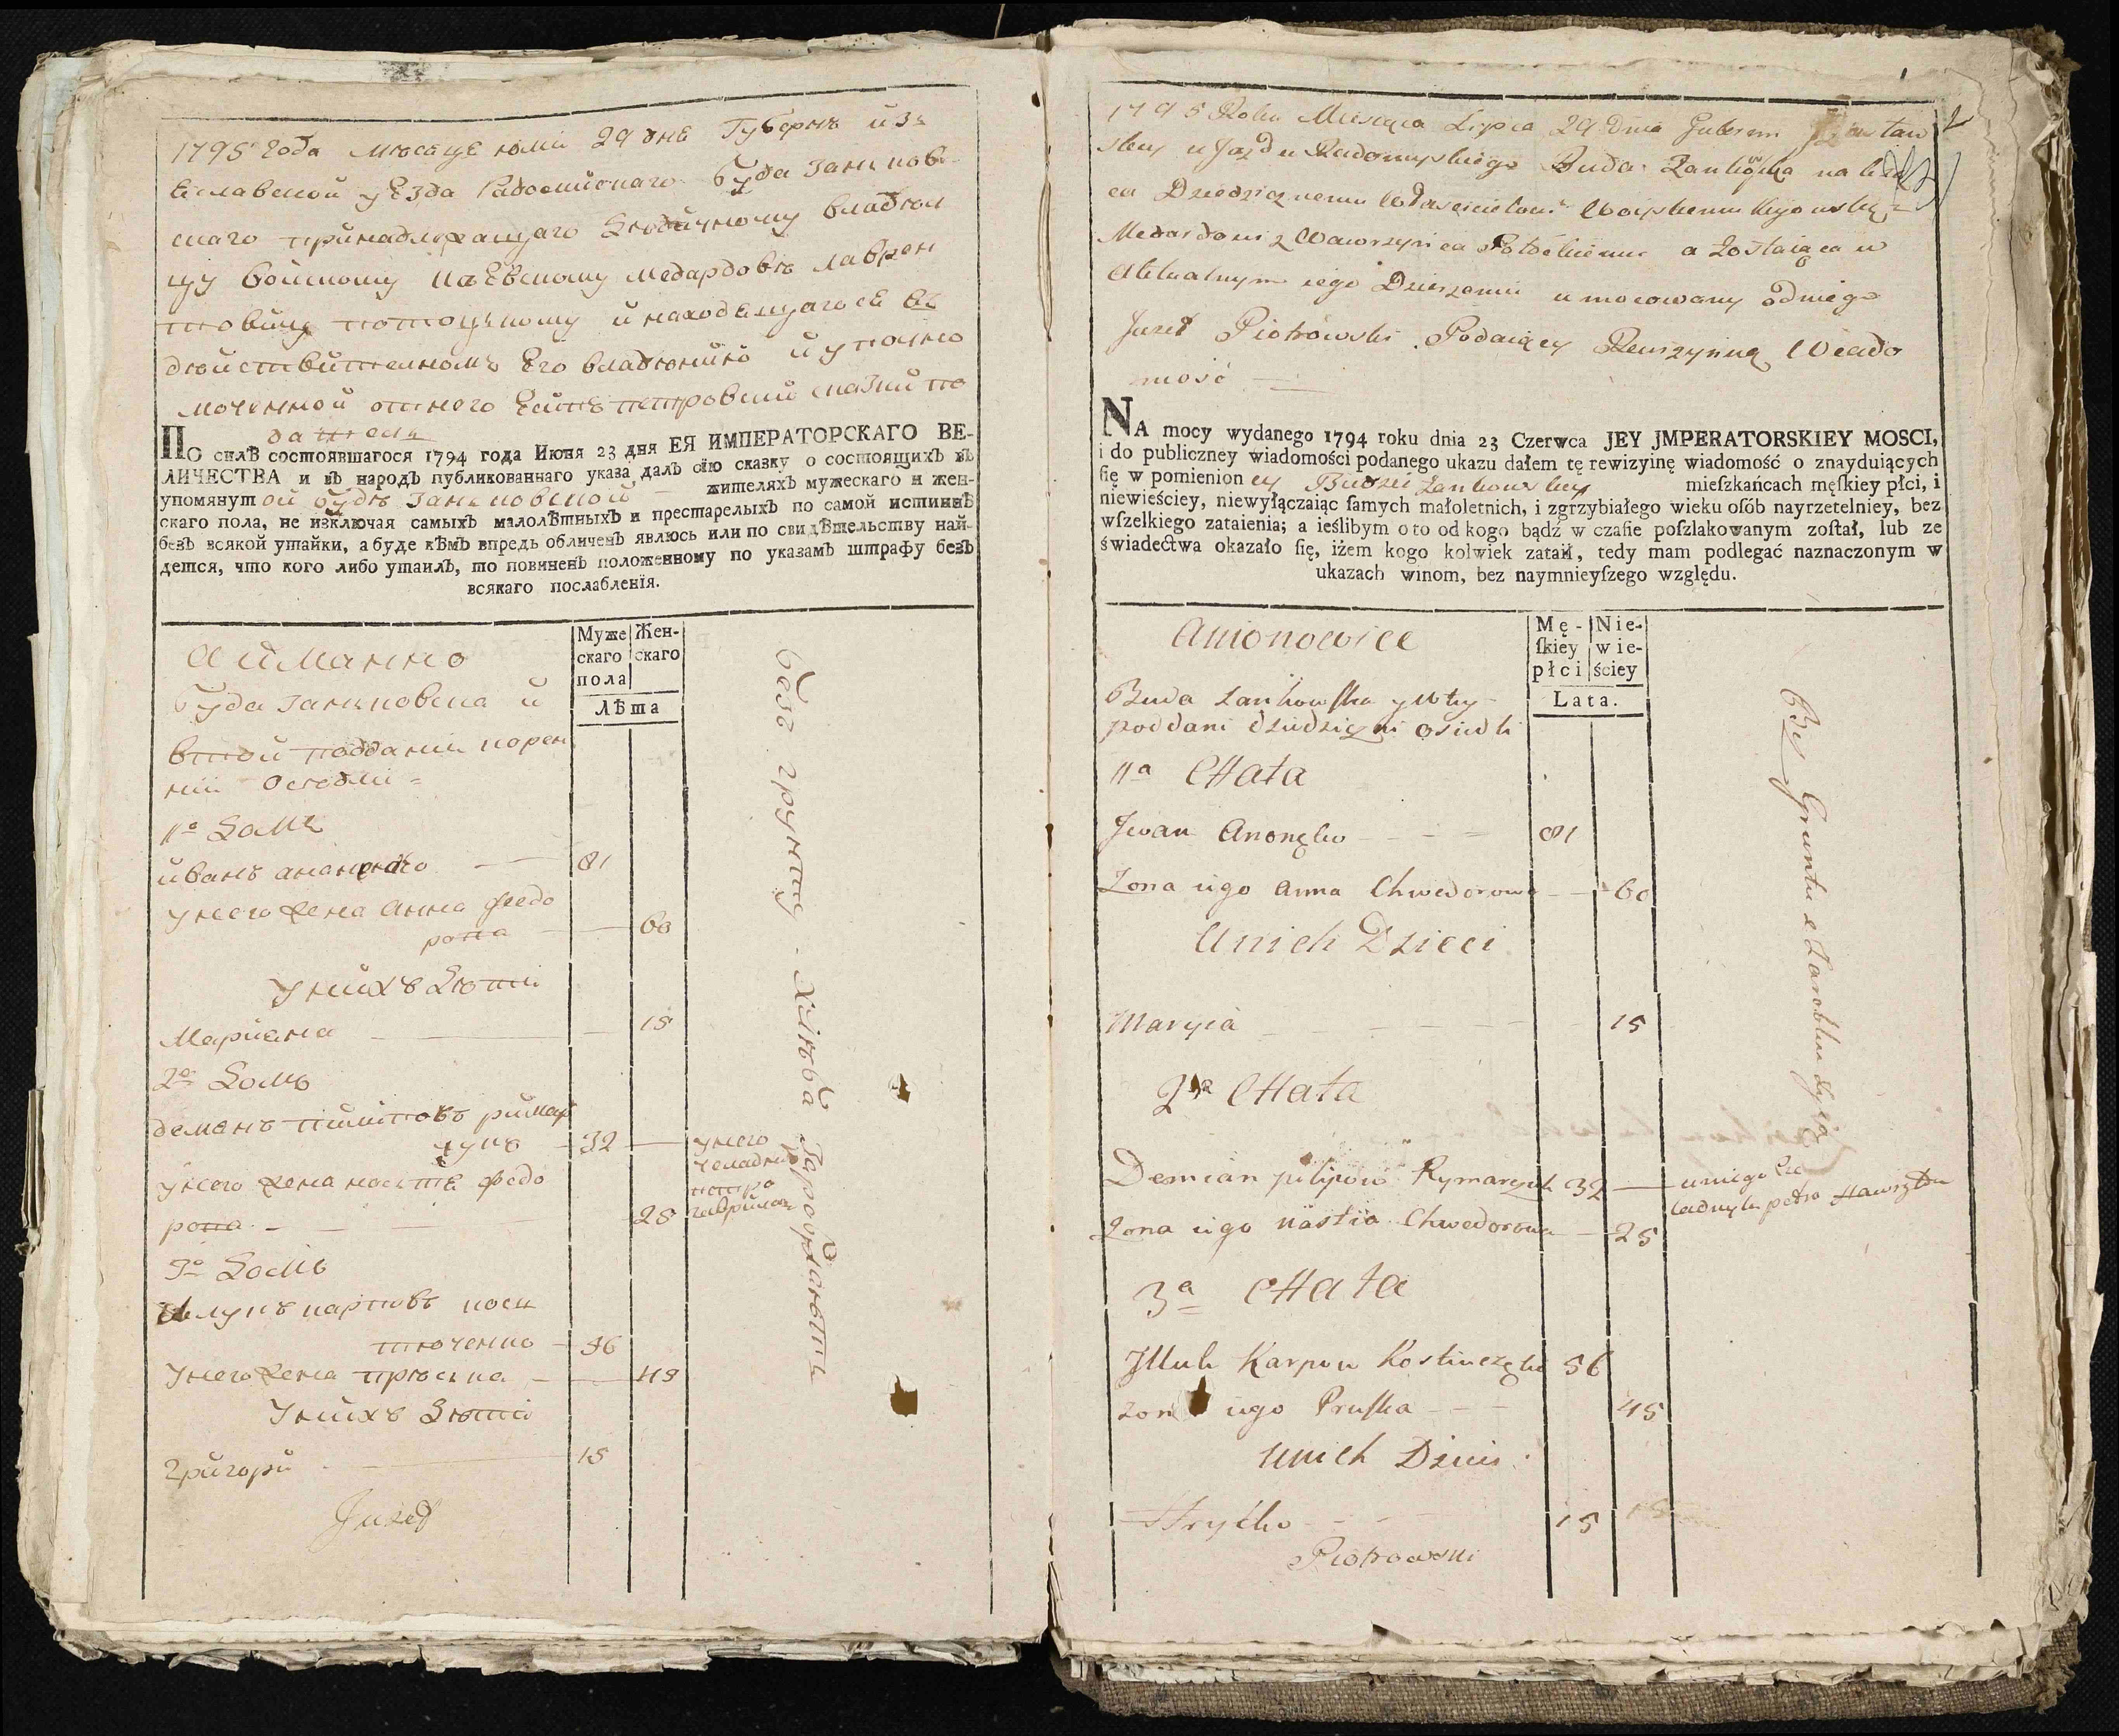 1795 года мѣсяце юлii 29 дне Губерне изъ
еславской уезда Радомисьлаго Буда Занкков
скаго принадлежащаго Дѣдичному владѣл
цу Войскому Киевскому Медардовѣ Лаврен
товичу Потоцькому и находящагося въ
дѣйствительномъ Его владѣнию и уполно
моченной отнего Петровский сказки по
датель
ПО силѣ состоявшагося 1794 года Июня 23 дня ЕЯ ИМПЕРАТОРСКАГО ВЕ-
ЛИЧЕСТВА и въ народъ публикованнаго указа далъ сїю сказку о состоящихъ въ
упомянутой Будѣ Занковской жителяхъ мужескаго и жен-
скаго пола, не изключая самыхъ малолѣтныхъ и престарелыхъ по самой истиннѣ
безъ всякой утайки, а буде кѣмъ впредь обличенъ явлюсь или по свидѣтельству най-
дется, что кого либо утаилъ, то повиненъ положенному по указамъ штрафу безъ
всякаго послабленїя.
Муже Жен-
скаго скаго
пола
Лѣта
А именно
Буда Занковска и
втой подданiи корен
нiи оседли
1о Домъ
иванъ ананенко 81
унего жена Анна федо
рова 60
Унихъ Дѣти
Мариана 15
2о Домъ
демянъ пилиповъ римар
чукъ 32
унего жена настя федо
рова 25
унего
челадник
петро
гаврилов
3о Домъ
карповъ кости
юченко 56
Унего жена прюська 45
Унихъ Дѣти
григорий 15
Juzef
безъ грунту хлѣба заробляетъ
1795 Roku Miesiąca Lipca 29 Dnia Gubernii Izastaw
skiey ujazdu Radomyslskiego Buda Zankowska należą
ca Dziedzicznemu Włascicielowi Woiskiemu Kijowskie
Medardowi z Wawrzyńca Potockiemu a Zostaiąca w
Aktualnym iego Dzierzeniu umocowany odniego
Juzef Piotrowski Podaiący Rewizyiną Wiado
mość
NA mocy wydanego 1794 roku dnia 23 Czerwca JEY JMPERATORSKIEY MOSCI,
i do publiczney wiadomości podanego ukazu dałem tę rewizyinę wiadomość o znayduiących
ſię w pomienioney Budzie Zankowskiey mieſzkańcach męſkiey płci, i
niewieściey, niewyłączaiąc ſamych małoletnich, i zgrzybiałego wieku osób nayrzetelniey, bez
wſzelkiego zataienia; a ieślibym o to od kogo bądź w czaſie poſzlakowanym zoſtał, lub ze
świadectwa okazało ſię, iżem kogo kolwiek zataił, tedy mam podlegać naznaczonym w
ukazach winom, bez naymnieyſzego względu.
Mę- Nie-
ſkiey wie-
płci ściey
Lata.
Amonowice
Buda Zankowſka y wtey
poddani dziedziczni osiedli
1a CHata
Jwan Anonęko 81
Zona iego Anna Chwedorowa 60
Unich Dzieci
Maryia 15
2a CHata
Demian pilipow Rymarczuk 32
uniego Cze
ladnyk petro Hawryłow
Zona iego nastia Chwedorowa 25
3a CHata
Karpow Kostiuczęko 56
zona iego Pruſka 45
Unich Dzieci
Hryćko 15
Piotrowski
Bez Gruntu z Zarobku żyją